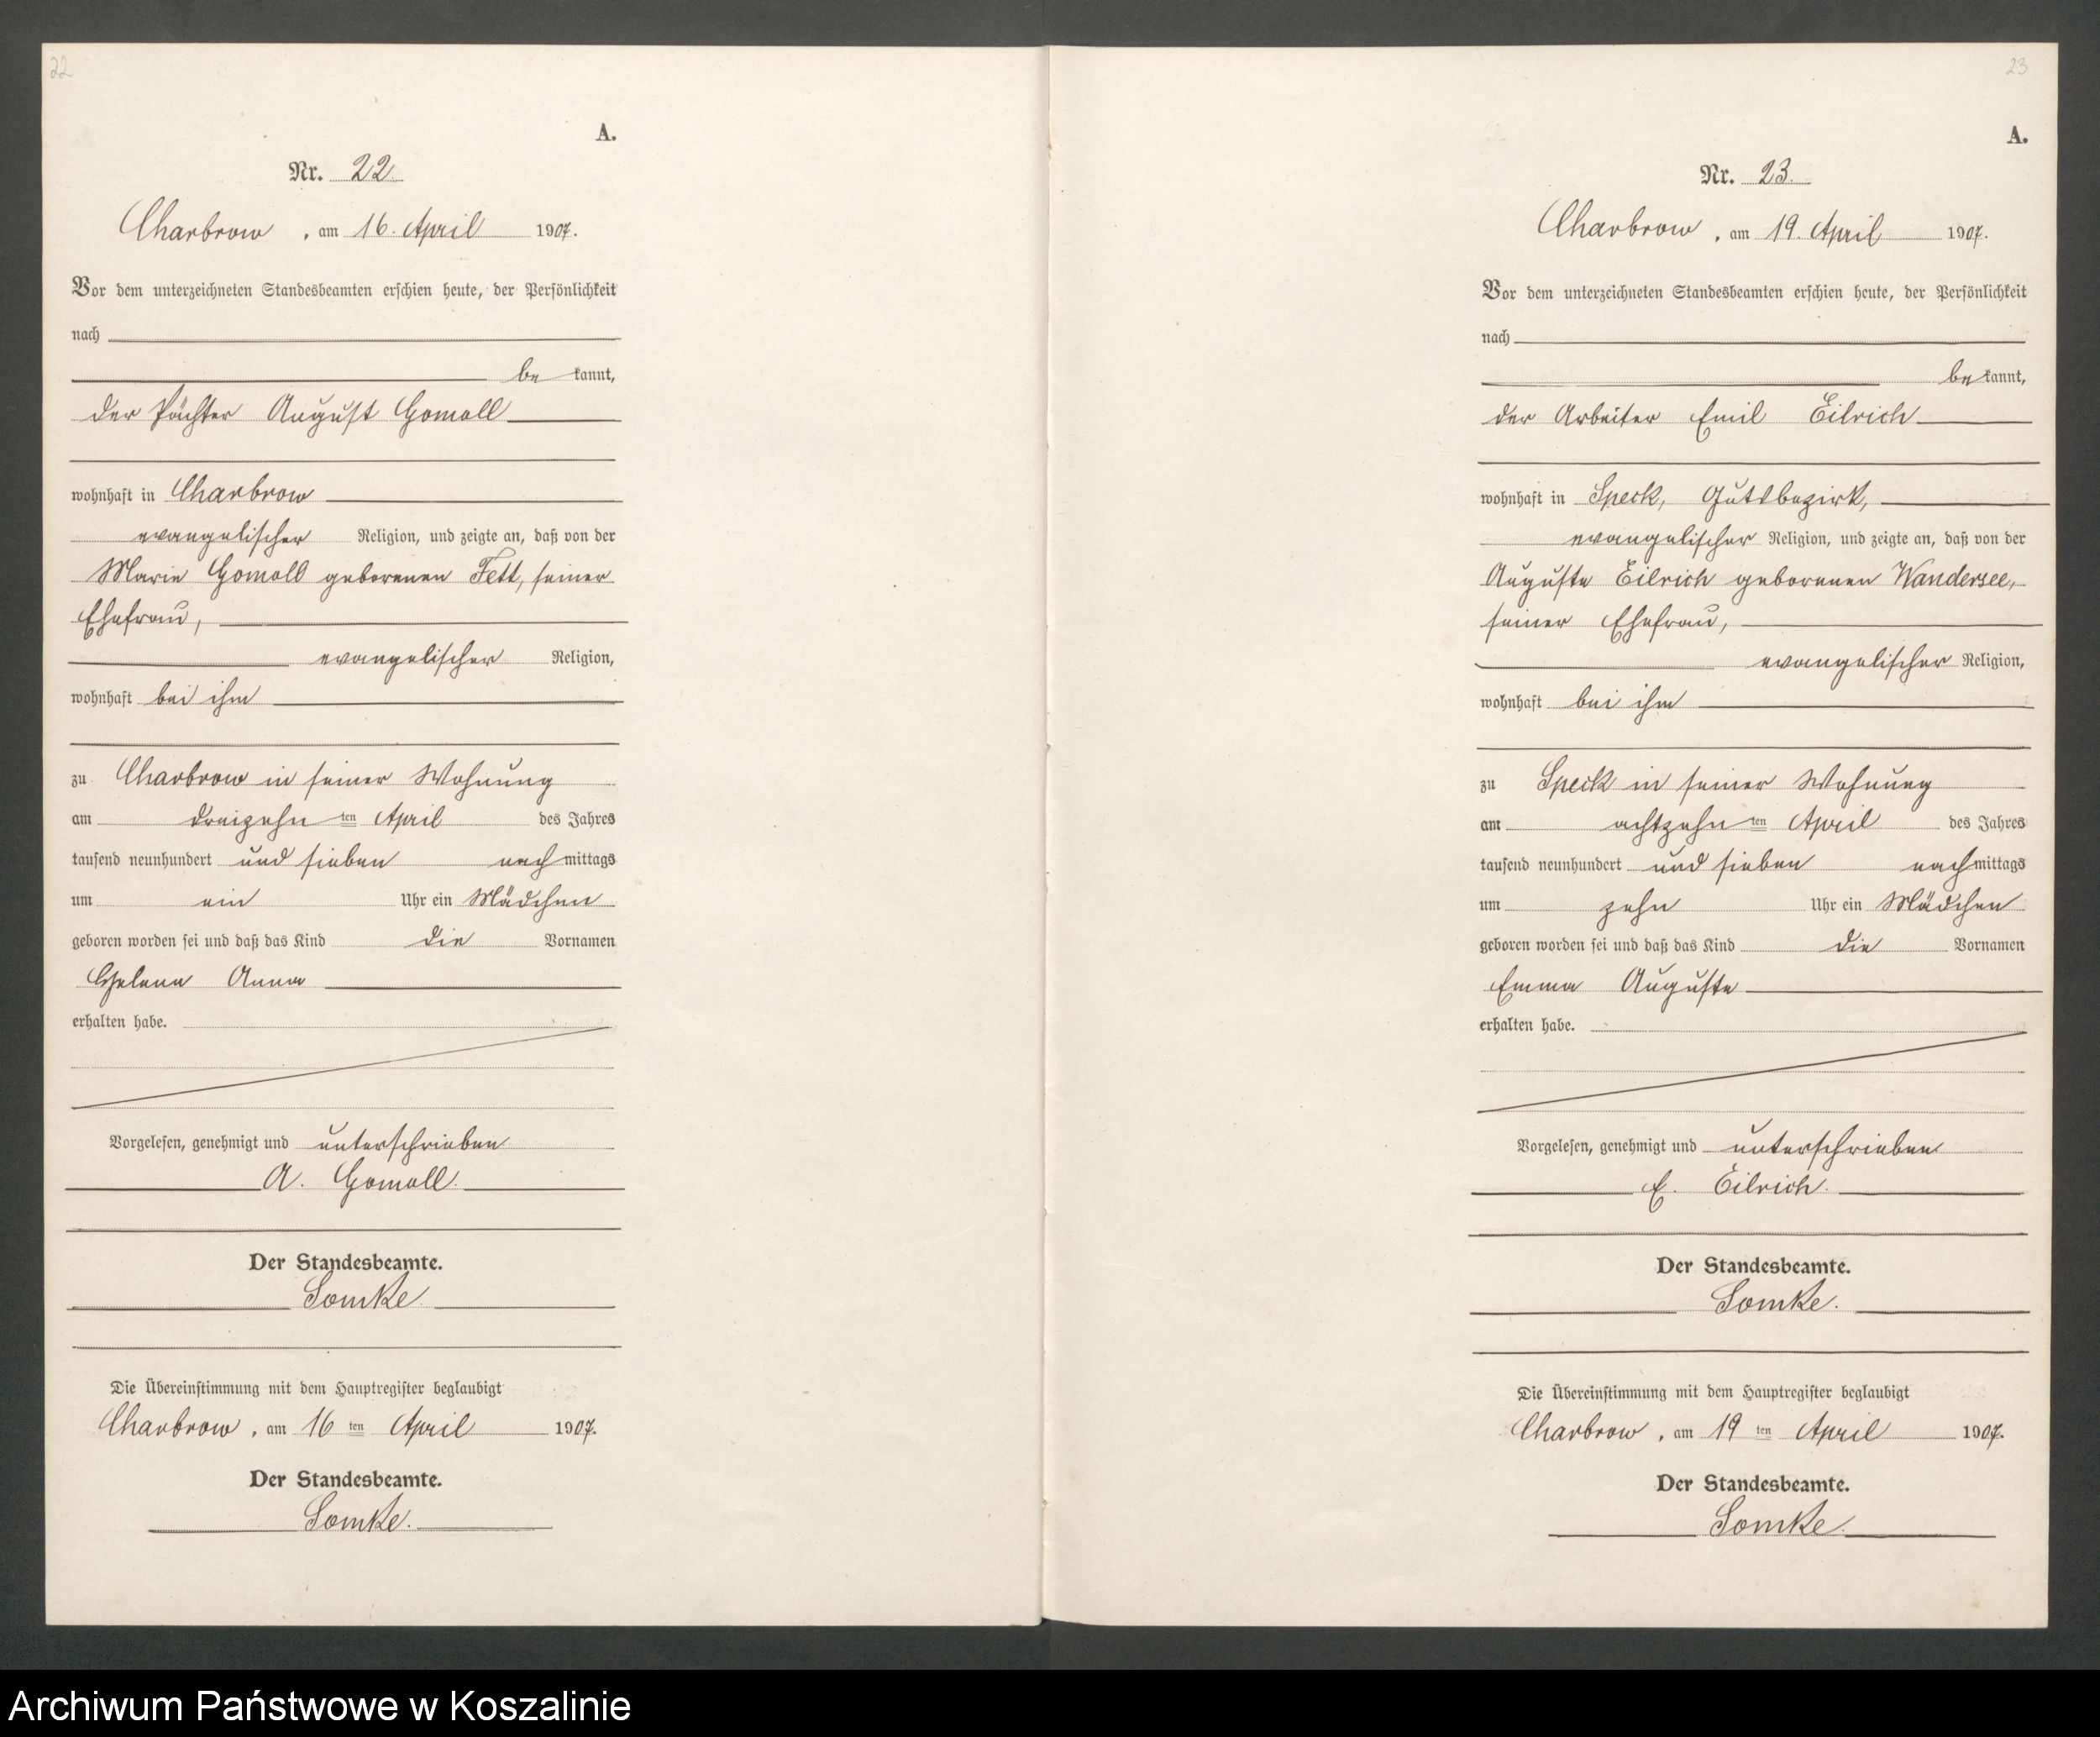 22
A.
Nr. 22.
Charbrow, am 16. April 1907.
Vor dem unterzeichneten Standesbeamten erschien heute, der Persönlichkeit
nach
be kannt,
der Pächter August Gomoll
wohnhaft in Charbrow
evangelischer Religion, und zeigte an, daß von der
Marie Gomoll geborenen Fett, seiner
Ehefrau,
evangelischer Religion,
wohnhaft bei ihm
zu Charbrow in seiner Wohnung
am dreizehn ten April des Jahres
tausend neunhundert und sieben nach mittags
um ein Uhr ein Mädchen
geboren worden sei und daß das Kind die Vornamen
Helene Anna
erhalten habe.
Vorgelesen, genehmigt und unterschrieben
A. Gomoll.
Der Standesbeamte.
Somke.
Die Übereinstimmung mit dem Hauptregister beglaubigt
Charbrow, am 16 ten April 1907.
Der Standesbeamte.
Somke.
23
A.
Nr. 23.
Charbrow, am 19. April 1907.
Vor dem unterzeichneten Standesbeamten erschien heute, der Persönlichkeit
nach
be kannt,
der Arbeiter Emil Eilrich
wohnhaft in Speck, Gutsbezirk,
evangelischer Religion, und zeigte an, daß von der
Auguste Eilrich geborenen Wandersee,
seiner Ehefrau,
evangelischer Religion,
wohnhaft bei ihm
zu Speck in seiner Wohnung
am achtzehn ten April des Jahres
tausend neunhundert und sieben nach mittags
um zehn Uhr ein Mädchen
geboren worden sei und daß das Kind die Vornamen
Emma Auguste
erhalten habe.
Vorgelesen, genehmigt und unterschrieben
E. Eilrich.
Der Standesbeamte.
Somke.
Die Übereinstimmung mit dem Hauptregister beglaubigt
Charbrow, am 19 ten April 1907.
Der Standesbeamte.
Somke.
Archiwum Państwowe w Koszalinie